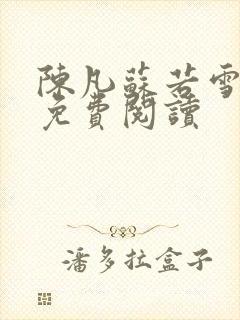 陳凡蘇若雪
免費閱讀
潘多拉盒子